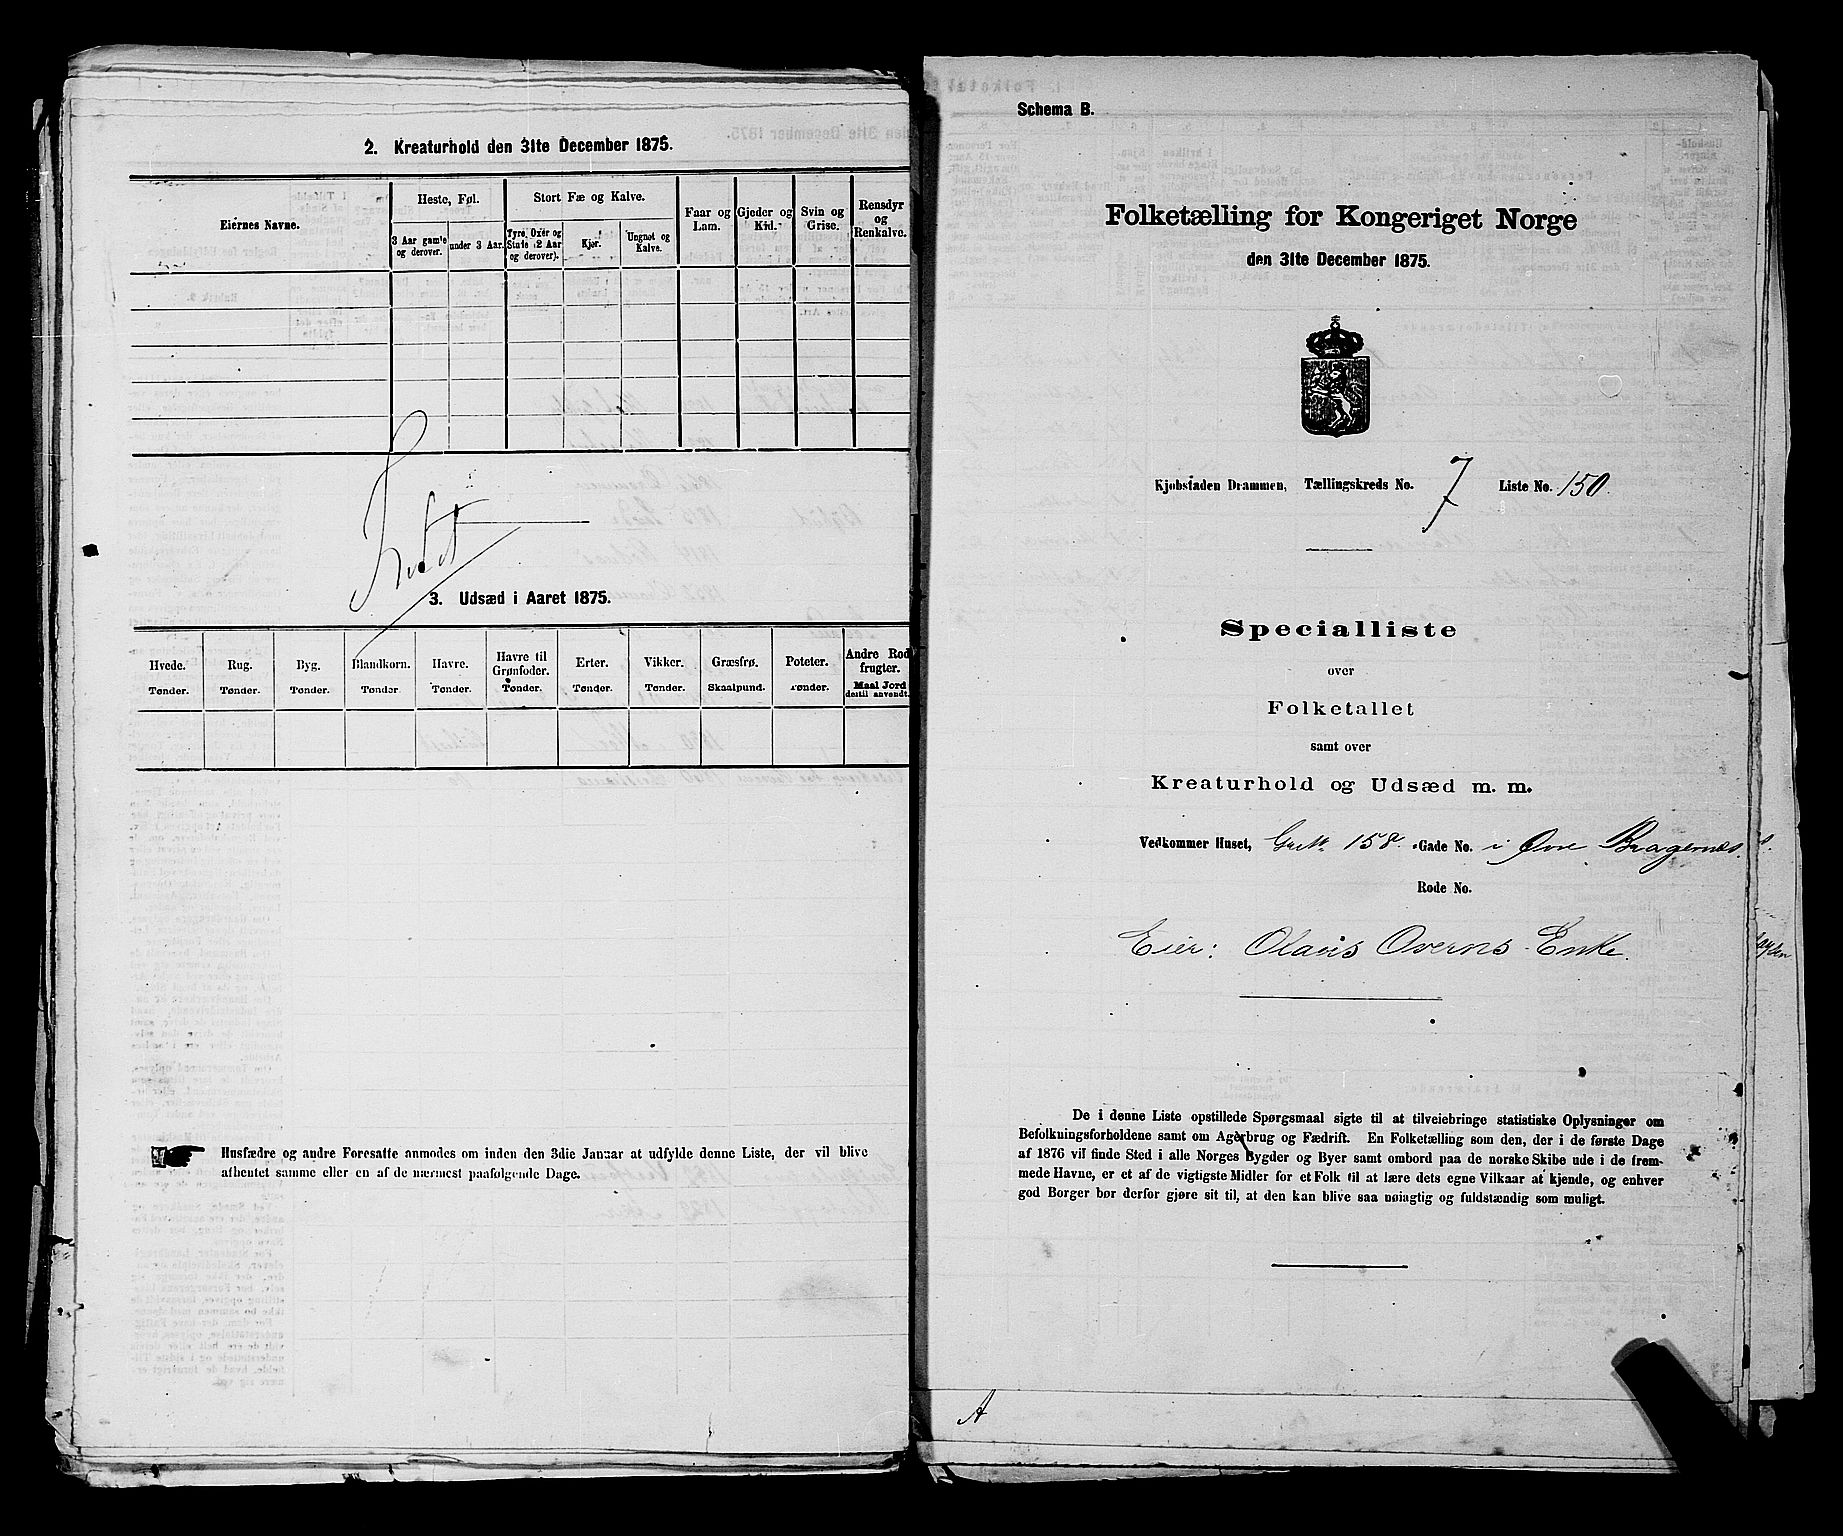 2. Kreaturhold den 31te December 1875.
Eiernes Navne.
Heste, Føl.
3 Aar gamle og derover.
under 3 Aar.
Stort Fæ og Kalve.
Tyre, Oxer og Stude (2 Aar og derover).
Kjør.
Ungnøt og Kalve.
Faar og Lam.
Gjeder og Kid.
Svin og Grise.
Rensdyr og Renkalve.
3. Udsæd i Aaret 1875.
Hvede. Tønder.
Rug. Tønder.
Byg. Tønder.
Blandkorn. Tønder.
Havre. Tønder.
Havre til Grønfoder. Tønder.
Erter. Tønder.
Vikker. Tønder.
Græsfrø. Skaalpund.
Poteter. Tønder.
Andre Rod frugter. Maal Jord dertil anvendt.
Husfædre og andre Foresatte anmodes om inden den 3die Januar at udfylde denne Liste, der vil blive
afhentet samme eller en af de nærmest paafølgende Dage.
Schema B.
Folketælling for Kongeriget Norge
den 31te December 1875.
Kjøbstaden Drammen, Tællingskreds No. 7 Liste No. 150.
Specialliste
over
Folketallet
samt over
Kreaturhold og Udsæd m. m.
Vedkommer Huset, 158. Gade No. i Øvre Bragernes.
Rode No.
Eier: Olaus Overns Enke.
De i denne Liste opstillede Spørgsmaal sigte til at tilveiebringe statistiske Oplysninger om
Befolkningsforholdene samt om Agerbrug og Fædrift. En Folketælling som den, der i de første Dage
af 1876 vil finde Sted i alle Norges Bygder og Byer samt ombord paa de norske Skibe ude i de frem-
mede Havne, er et af de vigtigste Midler for et Folk til at lære dets egne Vilkaar at kjende, og enhver
god Borger bør derfor gjøre sit til, at den kan blive saa nøiagtig og fuldstændig som muligt.
A